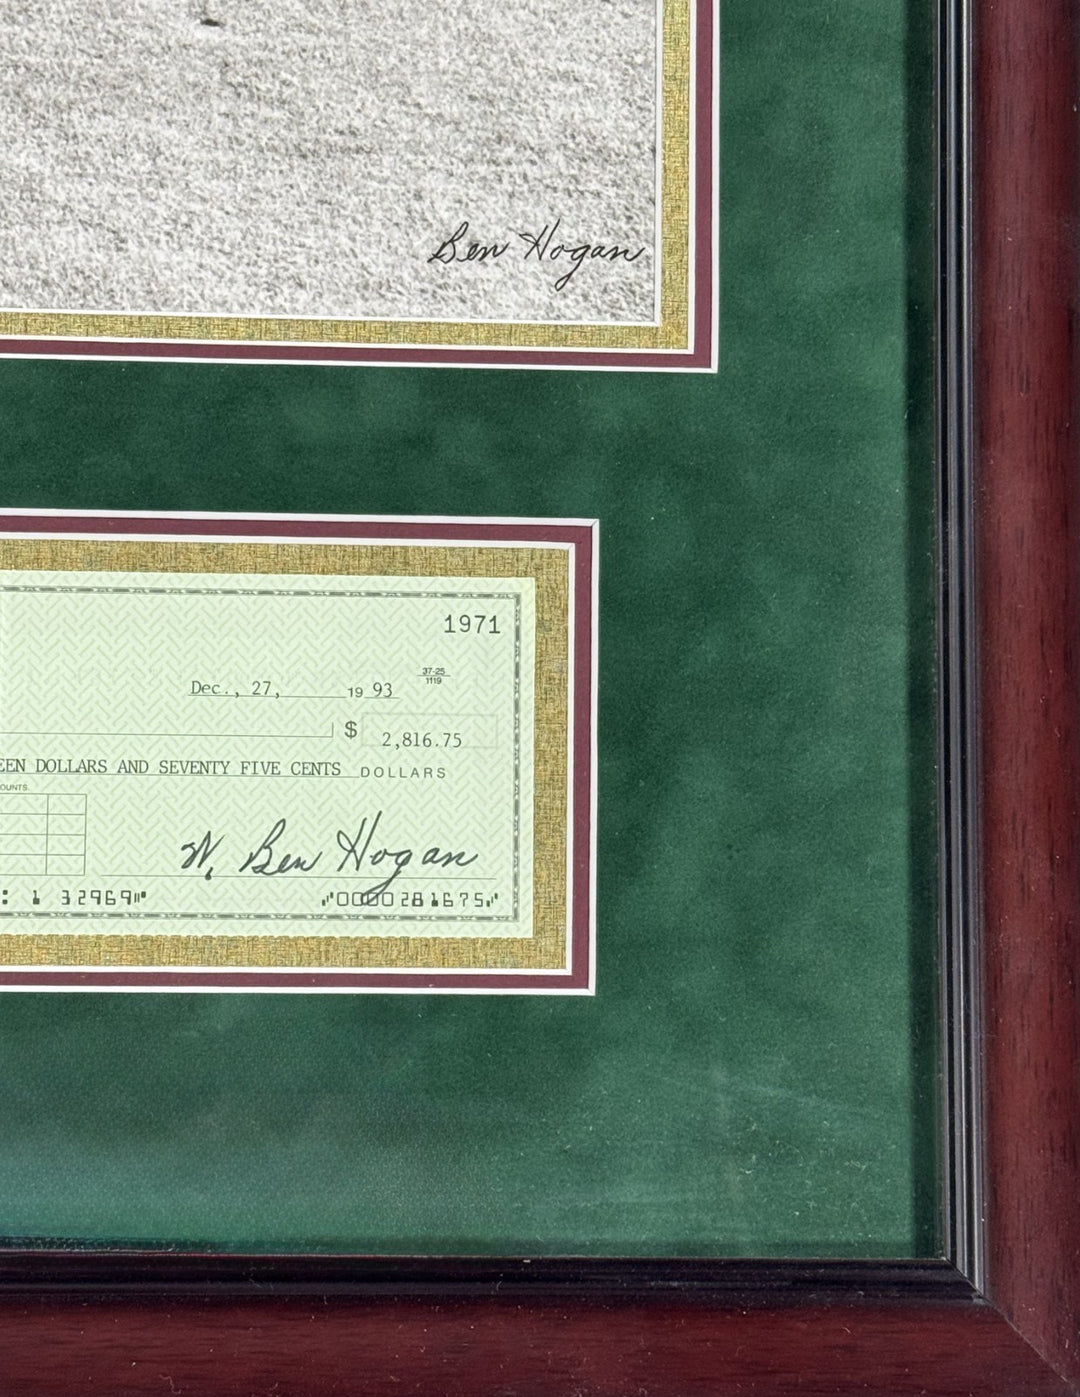 Ben Hogan
1971
37-25
1119
Dec., 27, 19 93
$ 2,816.75
EEN DOLLARS AND SEVENTY FIVE CENTS DOLLARS
OUNTS
W. Ben Hogan
⑆ 1 32969⑈ ⑈0000281675⑈